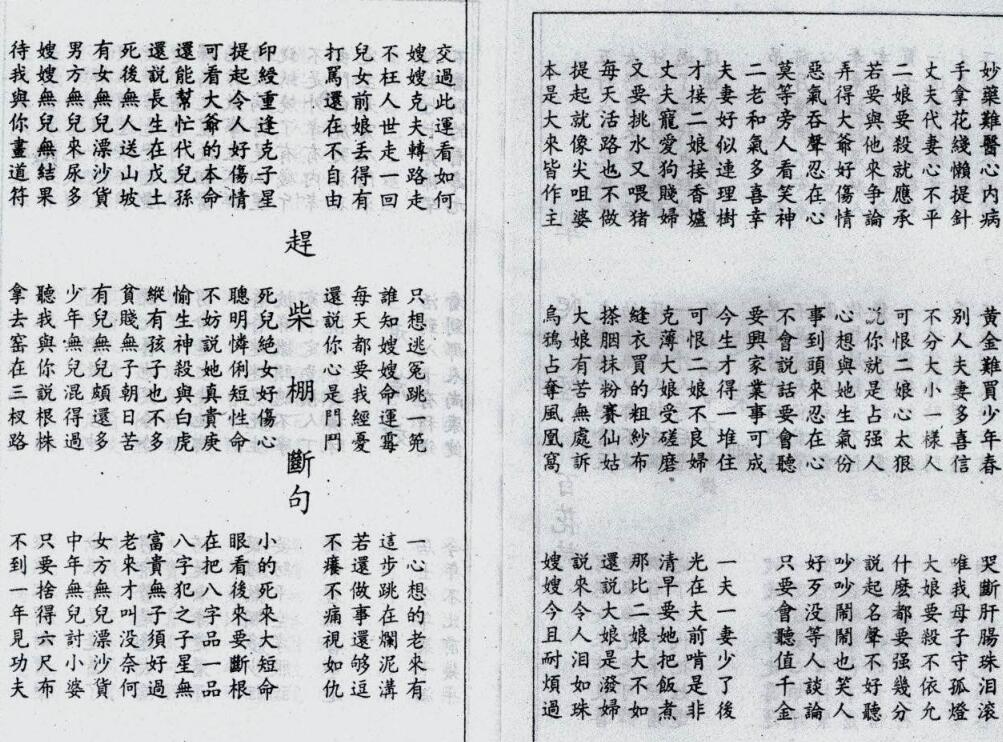 妙藥難醫心內病 黃金難買少年春 哭斷肝腸珠泪滾
手拿花綫懶提針 別人夫妻多喜信 唯我母子守孤燈
丈夫代妻心不平 不分大小一樣人 大娘要殺不依允
二娘要殺就應承 可恨二娘心太狠 什麽都要强幾分
若要與他來爭論 説你就是占强人 說起名聲不好聽
弄得大爺好傷情 心想與她生氣份 吵吵鬧鬧也笑人
惡氣吞聲忍在心 事到頭來忍在心 好歹没等人談論
莫等旁人看笑神 不會說話要會聽 只要會聽值千金
二老和氣多喜幸 要興家業事可成
夫妻好似連理樹 今生才得一堆住 一夫一妻少了後
才接二娘接香爐 可恨二娘不良婦 光在夫前啃是非
丈夫寵愛狗賤婦 克薄大娘受磋磨 清早要她把飯煮
又要挑水又喂猪 縫衣買的粗紗布 那比二娘大不如
每天活路也不做 搽胭抹粉賽仙姑 還說大娘是潑婦
提起就像尖咀婆 大娘有苦無處訴 說來令人泪如珠
本是大來皆作主 烏鴉占奪風凰窩 嫂嫂今且耐煩過
交過此運看如何
嫂嫂克夫轉路走 只想逃冤跳一篼 一心想的老來有
不枉人世走一回 誰知嫂嫂命運霉 這步跳在爛泥溝
兒女前娘丢得有 每天都要我經憂 若還做事還够逗
打罵還在不自由 還說你心是門鬥 不癢不痛視如仇
趕柴棚斷句
印綬重逢克子星 死兒絕女好傷心 小的死來大短命
提起令人好傷情 聰明憐俐短性命 眼看後來要斷根
可看大爺的本命 不妨說她真貴庚 在把八字品一品
還能幫忙代兒孫 愉生神殺與白虎 八字犯之子星無
還說長生在戊土 縱有孩子也不多 富貴無子須好過
死後無人送山坡 貧賤無子朝日苦 老來才叫没奈何
有女無兒漂沙貨 有兒無兒頗還多 女方無兒漂沙貨
男方無兒來尿多 少年無兒混得過 中年無兒討小婆
嫂嫂無兒無結果 聽我與你說根株 只要捨得六尺布
待我與你畫道符 拿去窑在三杈路 不到一年見功夫